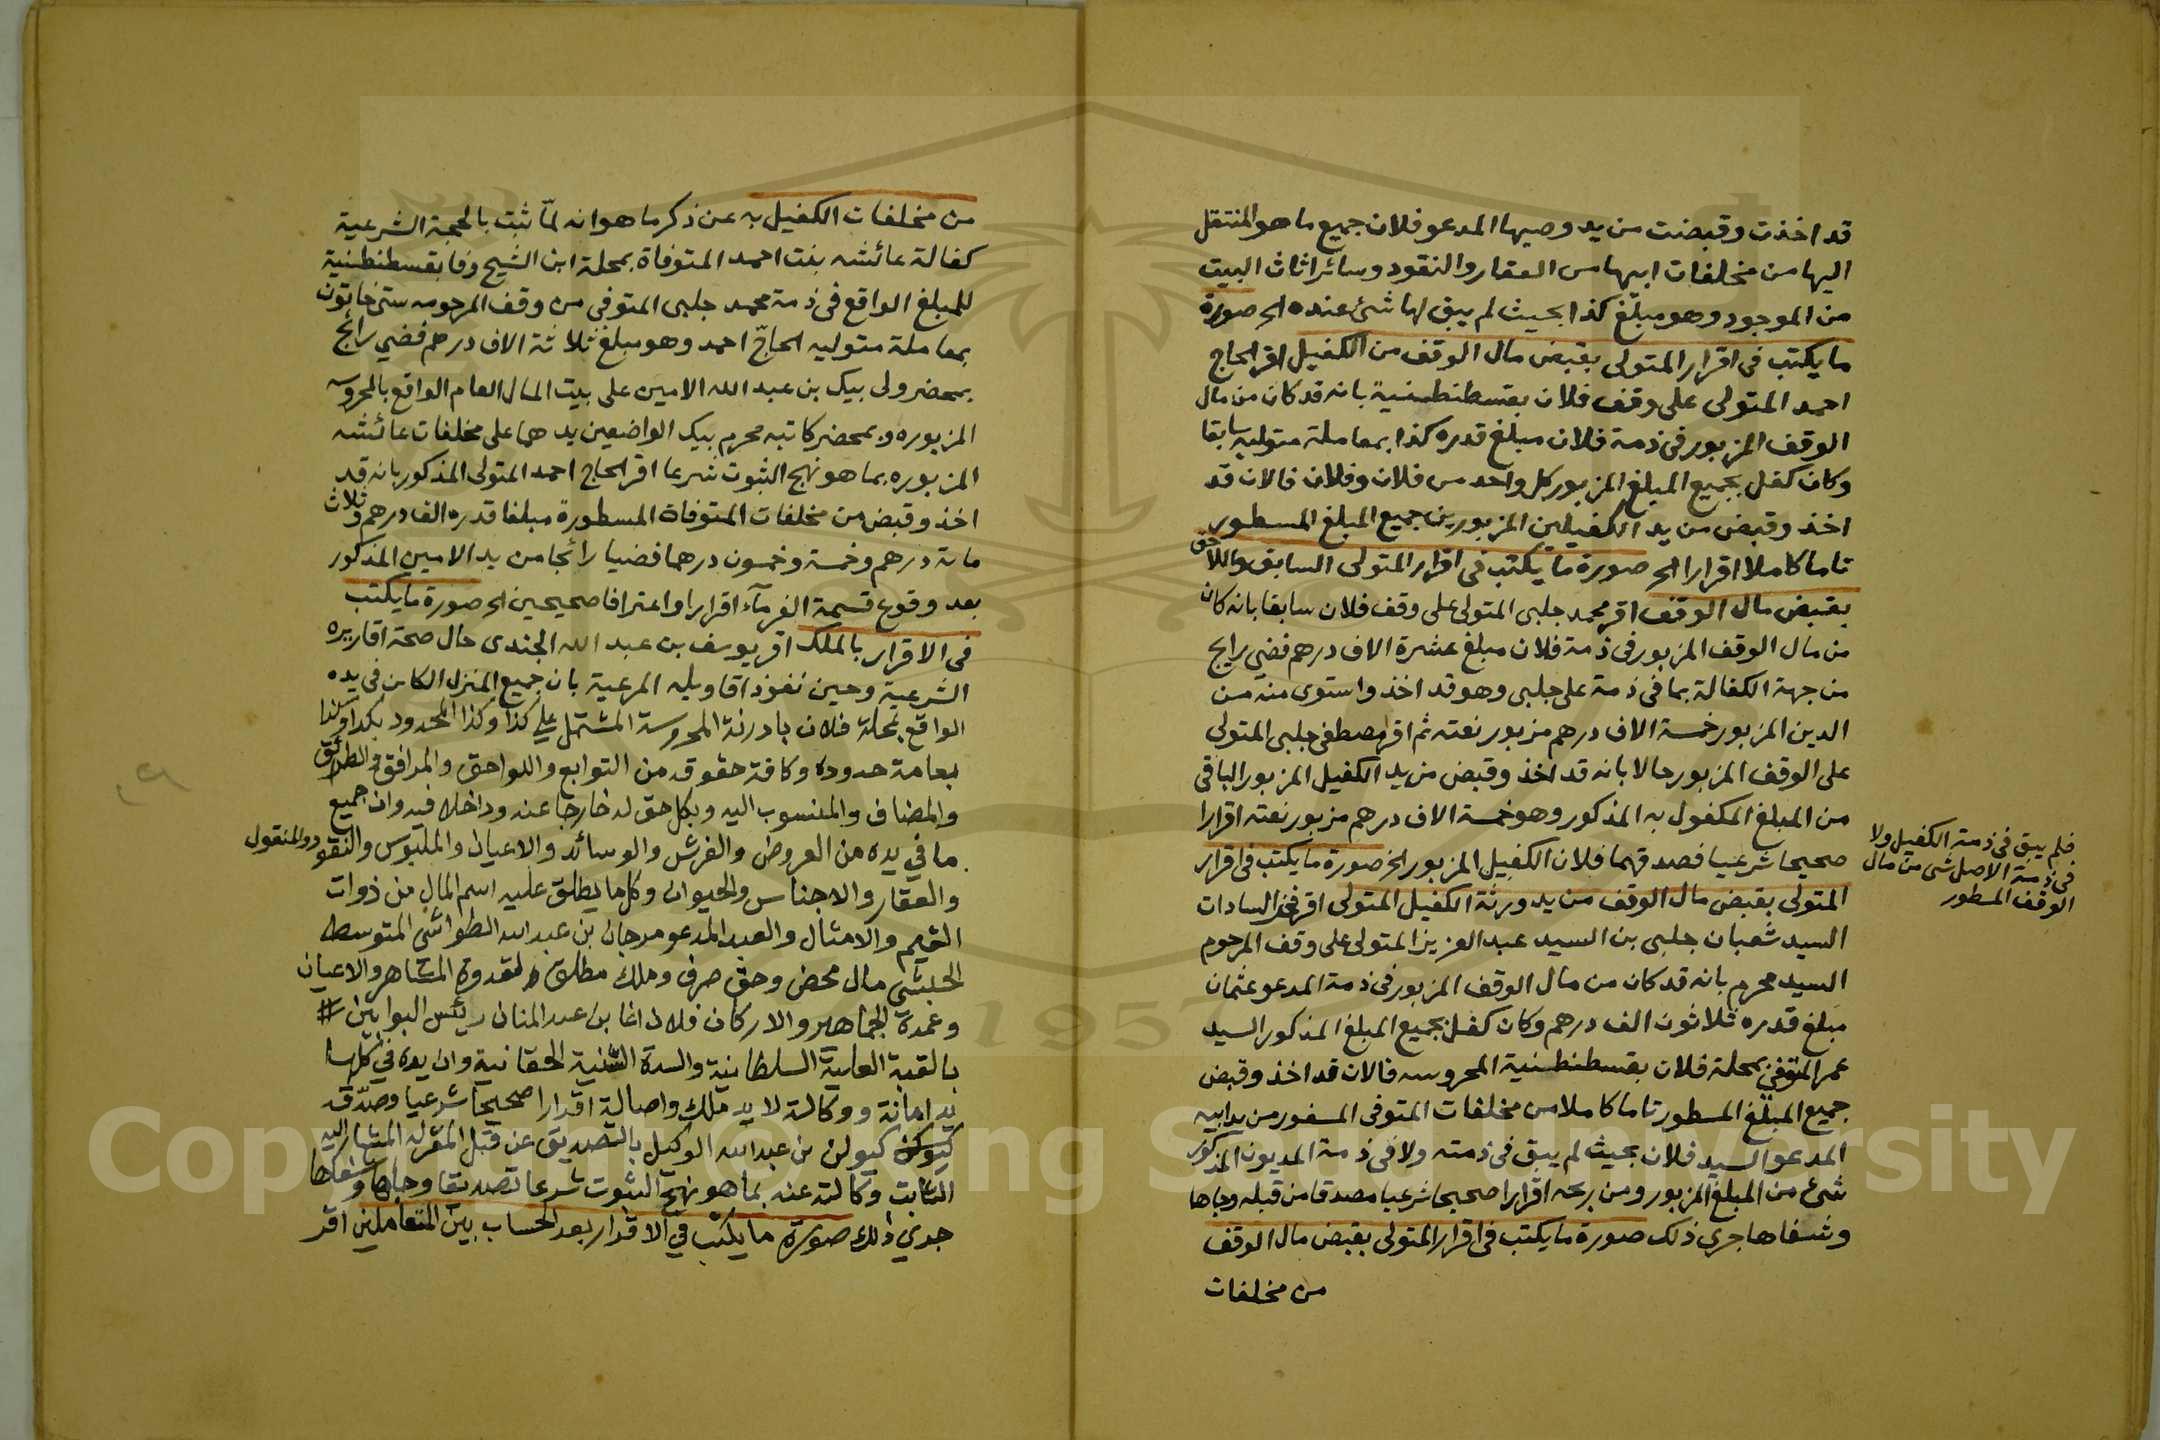 قد اخذت وقبضت من يد وصيها المدعو فلان جميع ما هو المنتقل
اليها من مخلفات ابيها من العقار والنقود وسائر اثاث البيت
من الموجود وهو مبلغ كذا بحيث لم يبق لها شئ عنده الخ صورة
ما يكتب في اقرار المتولى بقبض مال الوقف من الكفيل اقر الحاج
احمد المتولى على وقف فلان بقسطنطنية بانه قد كان من مال
الوقف المزبور في ذمة فلان مبلغ قدره كذا بمعاملة متوليه سابقا
وكان كفل بجميع المبلغ المزبور كل واحد من فلان وفلان فالان قد
اخذ وقبض من يد الكفيلين المزبورين جميع المبلغ المسطور
تاما كاملا اقرارا الخ صورة ما يكتب في اقرار المتولى السابق واللاحق
بقبض مال الوقف اقر محمد جلبى المتولى على وقف فلان سابقا بانه كان
من مال الوقف المزبور في ذمة فلان مبلغ عشرة الاف درهم فضي رايج
من جهة الكفالة بما في ذمة على جلبى وهو قد اخذ واستوى منه من
الدين المزبور خمسة الاف درهم مزبور نعته ثم اقر مصطفى جلبى المتولى
على الوقف المزبور حالا بانه قد اخذ وقبض من يد الكفيل المزبور الباقي
من المبلغ المكفول به المذكور وهو خمسة الاف درهم مزبور نعته اقرارا
صحيحا شرعيا فصدقهما فلان الكفيل المزبور الخ صورة ما يكتب في اقرار
المتولى بقبض مال الوقف من يد ورثة الكفيل المتولى اقر فخر السادات
السيد شعبان جلبى بن السيد عبد العزيز المتولى على وقف المرحوم
السيد محرم بانه قد كان من مال الوقف المزبور في ذمة المدعو عثمان
مبلغ قدره ثلاثون الف درهم وكان كفل بجميع المبلغ المذكور السيد
عمر المتوفى بمحلة فلان بقسطنطنية المحروسه فالان قد اخذ وقبض
جميع المبلغ المسطور تاما كاملا من مخلفات المتوفى المسفور من يد ابيه
المدعو السيد فلان بحيث لم يبق في ذمته ولا في ذمة المديون المذكور
شئ من المبلغ المزبور ومن ربحه اقرارا صحيحا شرعيا مصدقا من قبله وجاها
وشفاها جرى ذلك صورة ما يكتب في اقرار المتولى بقبض مال الوقف
من مخلفات
فلم يبق في ذمة الكفيل ولا
في ذمة الاصل شئ من مال
الوقف المسطور
من مخلفات الكفيل به عن ذكر ما هو انه لمّا ثبت بالحجة الشرعية
كفالة عائشه بنت احمد المتوفاة بمحلة ابن الشيخ وفا بقسطنطنية
للمبلغ الواقع في ذمة محمد جلبى المتوفى من وقف المرحومه ستى خاتون
بمعاملة متوليه الحاجّ احمد وهو مبلغ ثلاثة الاف درهم فضي رائج
بمحضر ولى بيك بن عبد الله الامين على بيت المال العام الواقع بالمحروسه
المزبوره وبمحضر كاتبه محرم بيك الواضعين يدهما على مخلفات عائشه
المزبوره بما هو نهج الثبوت شرعا اقر الحاج احمد المتولى المذكور بانه قد
اخذ وقبض من مخلفات المتوفاة المسطورة مبلغا قدره الف درهم وثلاث
مائة درهم وخمسة وخمسون درهما فضيا رائجا من يد الامين المذكور
بعد وقوع قسمة الغرمآء اقرارا واعترافا صحيحين الخ صورة ما يكتب
في الاقرار بالملك اقر يوسف بن عبد الله الجندى حال صحة اقاريره
الشرعية وحين نفوذ اقاويله المرعية بان جميع المنزل الكائن في يده
الواقع بمحلة فلان بادرنة المحروسة المشتمل على كذا وكذا المحدود بكذا وكذا
بعامة حدوده وكافة حقوقه من التوابع واللواحق والمرافق والطرائق
والمضاف والمنسوب اليه وبكل حق له خارجا عنه وداخلا فيه وان جميع
ما في يده من العروض والفرش والوسائد والاعيان والملبوس والنقود والمنقول
والعقار والاجناس والحيوان وكل ما يطلق عليه اسم المال من ذوات
القيم والامثال والعبد المدعو مرجان بن عبد الله الطواشي المتوسط
الحبشي مال محض وحق صرف وملك مطلق لقدوة المشاهر والاعيان
وعمدة الجماهير والاركان فلان اغا بن عبد المنان رئيس البوابين
بالقبة العلية السلطانية والسدة السنية الخقانية وان يده في كل
يد امانة ووكالة لا يد ملك واصالة اقرارا صحيحا شرعيا وصدّقه
كيولن بن عبد الله الوكيل بالتصديق عن قبل المقر له المشار اليه
الثابت وكالته عنه بما هو نهج الثبوت شرعا تصديقا وجاها وشفاها
جرى ذلك صورة ما يكتب في الاقرار بعد الحساب بين المتعاملين اقر
1957
Copyright © King Saud University